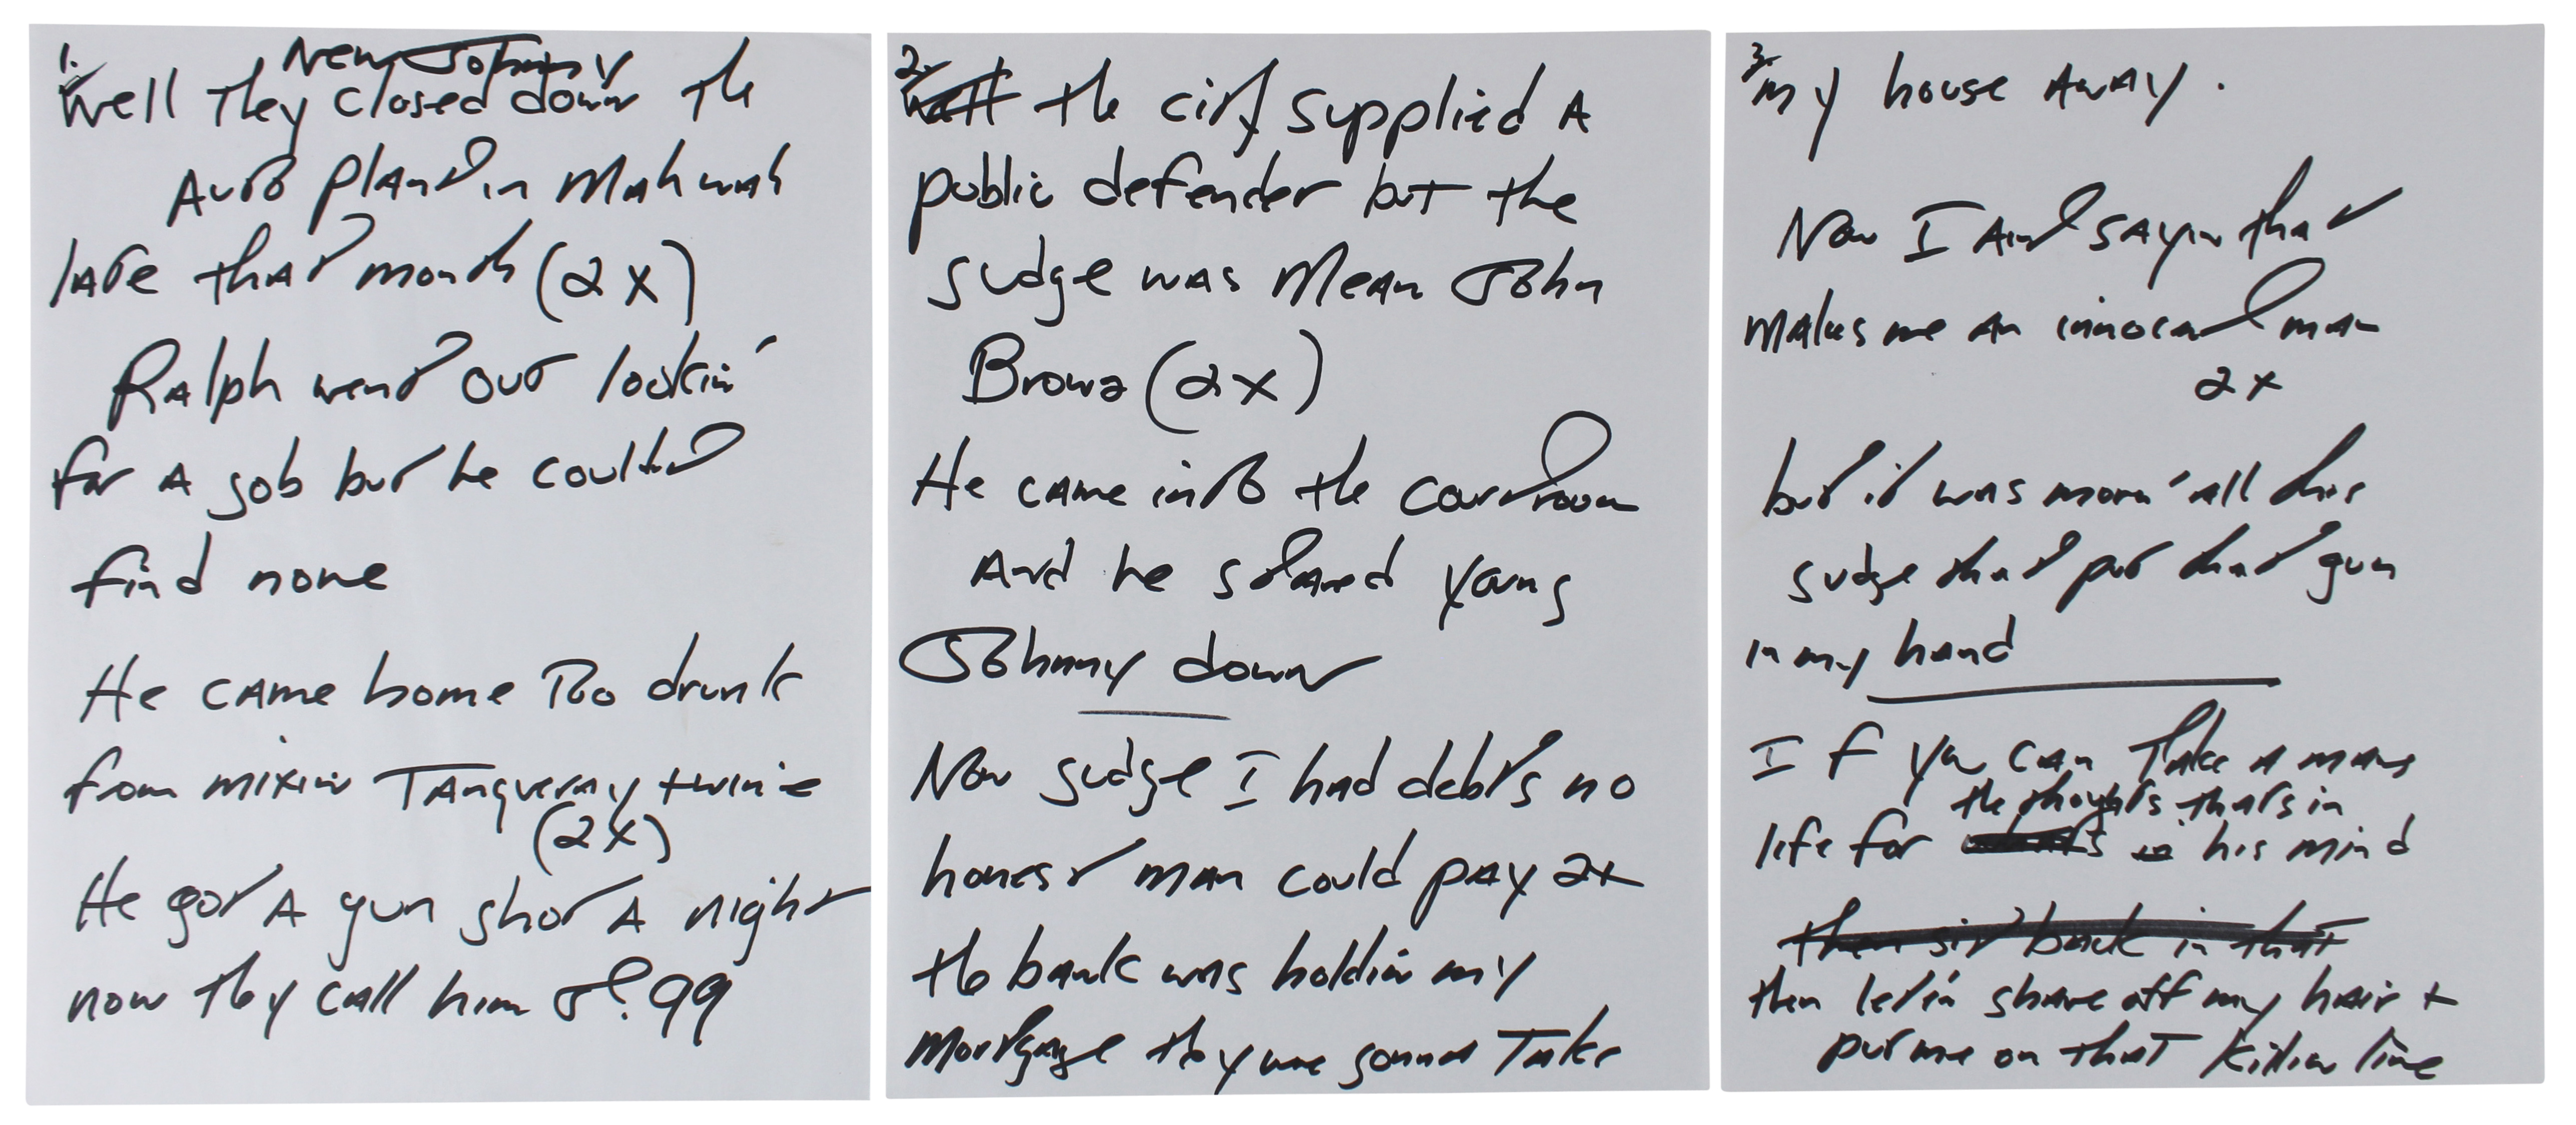 1. New Johnny
Well They closed down The
Auto plant in Mahwah
late that month (2x)
Ralph went out lookin'
for A job but he couldn't
find none
He came home Too drunk
from mixin Tanqueray + wine
(2x)
He got A gun shot A night
now they call him J. 99
2. Well the city supplied A
public defender but the
judge was Mean John
Brown (2x)
He came into the courtroom
And he stared young
Johnny down
Now judge I had debts no
honest man could pay 2x
the bank was holdin my
Mortgage they was gonna Take
3. my house AWAY.
Now I Aint sayin that
makes me an innocent man
2x
but it was more' all this
judge that put that gun
in my hand
If you can Take a mans
the thoughts thats in
life for his mind
then sit back in that
then let'in shave off my hair +
put me on that Killin line